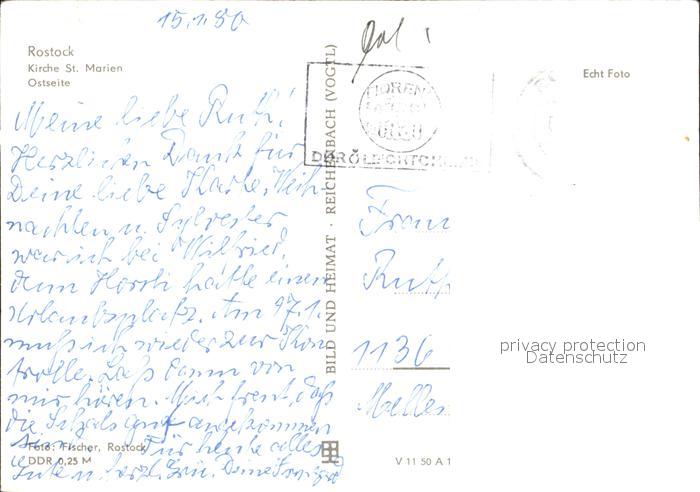 15.1.80
Rostock
Kirche St. Marien
Ostseite
Echt Foto
Meine liebe Ruth!
Herzlichen Dank für
Deine liebe Karte. Weih-
nachten u. Sylvester
war ich bei Wilfried,
denn Horsti hatte einen
Urlaubsplatz. Am
muß ich wieder zur Kon
trolle. Laß dann von
mir hören. Mich freut, daß
die Schals gut angekommen
sind. Für heute alles
Gute u. herzl. Grü. Deine
Foto: Fischer, Rostock
DDR 0,25 M
BILD UND HEIMAT · REICHENBACH (VOGTL)
V 11 50 A 1
Frau
Ruth
1136
privacy protection
Datenschutz